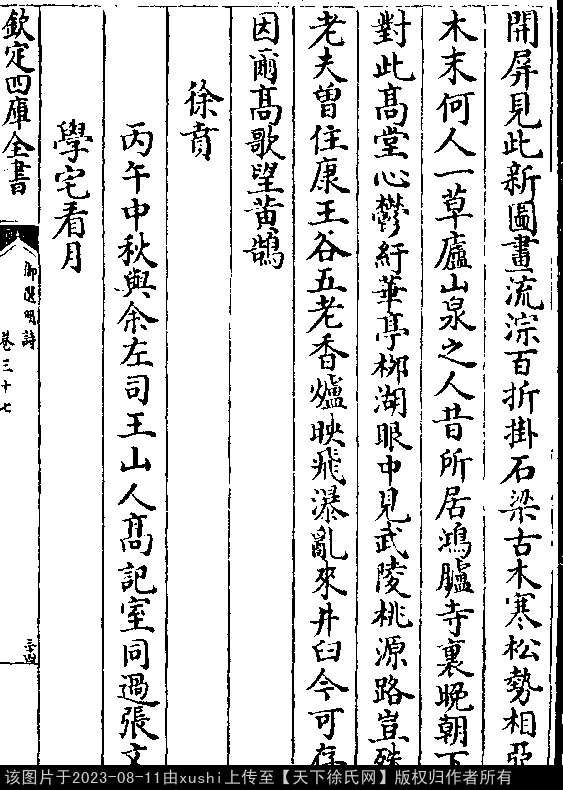 開屏見此新圖畫流淙百折掛石梁古木寒松勢相亞
木末何人一草廬山泉之人昔所居鴻臚寺裏晚朝下
對此高堂心鬱紆華亭柳湖眼中見武陵桃源路豈殊
老夫曾住康王谷五老香爐映飛瀑亂來井臼今可存
因爾高歌望黃鵠
徐賁
丙午中秋與余左司王山人高記室同過張文
學宅看月
欽定四庫全書
御選明詩
卷三十七
三十四
该图片于2023-08-11由xushi上传至【天下徐氏网】版权归作者所有